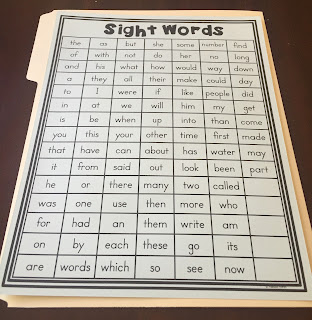 Sight Words
the as but she some number find
of with not do her no long
and his what how would way down
a they all their make could day
to I were if like people did
in at we will him my get
is be when up into than come
you this your other time first made
that have can about has water may
it from said out look been part
he or there many two called
was one use then more who
for had an them write am
on by each these go its
are words which so see now